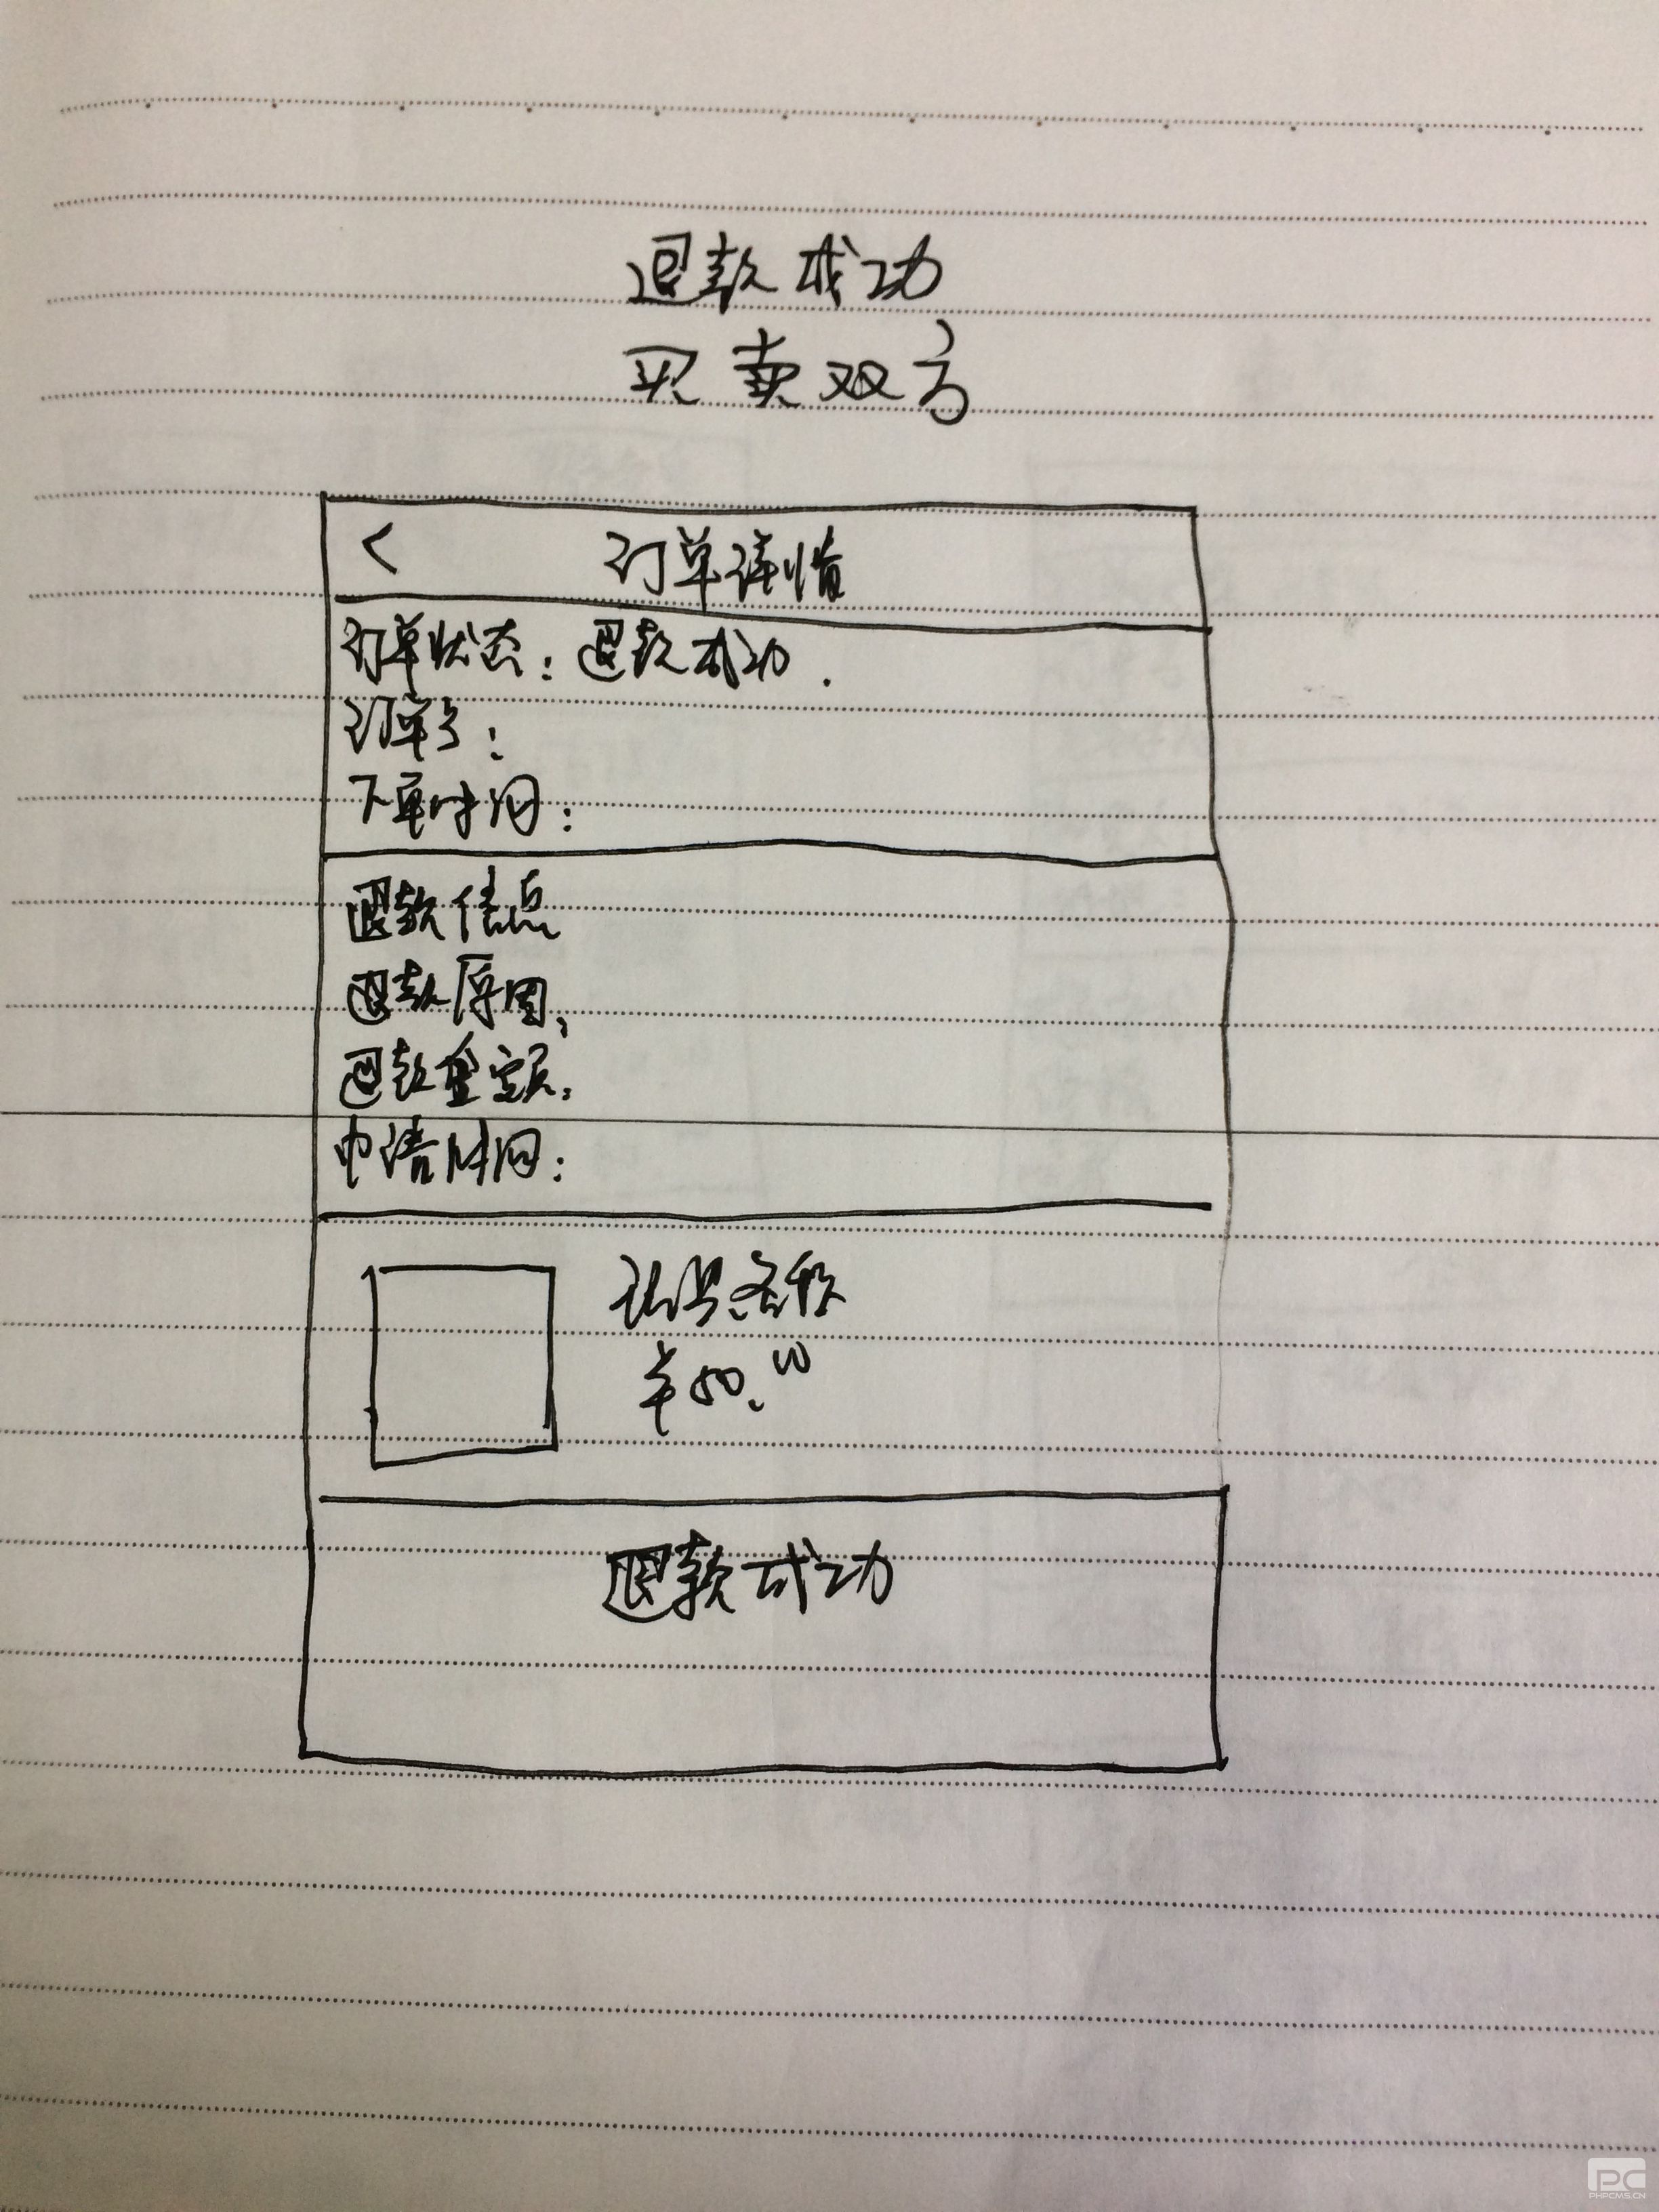 退款成功
买卖双方
< 订单详情
订单状态：退款成功.
订单号：
下单时间：
退款信息
退款原因：
退款金额：
申请时间：
名称
¥50.00
退款成功
PC
PHPCMS.CN